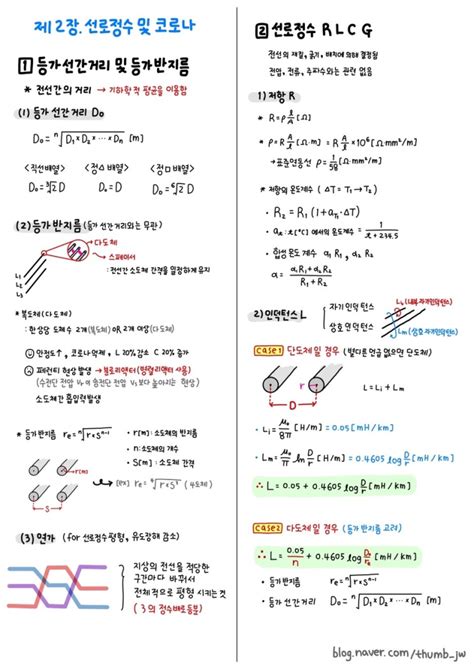 제 2장. 선로정수 및 코로나
1 등가선간거리 및 등가반지름
* 전선간의 거리 → 기하학적 평균을 이용함
(1) 등가 선간거리 Do
Do = ⁿ√D₁×D₂×…×Dₙ [m]
<직선배열> <정△배열> <정□배열>
Do = ³√2 D Do = D Do = ⁶√2 D
(2) 등가반지름 (등가 선간거리와는 무관)
다도체
스페이서
: 전선간 소도체 간격을 일정하게 유지
L₁
L₂
L₃
* 복도체(다도체)
: 한상당 도체수 2개(복도체) OR 2개 이상(다도체)
안정도↑, 코로나억제, L 20%감소 C 20% 증가
페란티 현상 발생 → 분로리액터(병렬리액터 사용)
(수관단 전압 Vr이 송전단 전압 Vs보다 높아지는 현상)
소도체간 흡입력발생
* 등가 반지름 re = ⁿ√r×Sⁿ⁻¹
• r[m] : 소도체의 반지름
• n : 소도체의 개수
• S[m] : 소도체 간격
r[m]
S
[ex) re = ⁴√r×S³ (4도체)
(3) 연가 (for 선로정수평형, 유도장해 감소)
지상의 전선을 적당한
구간마다 바꿔서
전체적으로 평형 시키는 것
(3의 정수배로등분)
2 선로정수 R L C G
전선의 재질, 굵기, 배치에 의해 결정됨
전압, 전류, 주파수와는 관련 없음
1) 저항 R
* R = ρ ℓ/A [Ω]
* ρ = R A/ℓ [Ω·m] = R A/ℓ ×10⁶ [Ω·mm²/m]
→ 표준연동선 ρ = 1/58 [Ω·mm²/m]
* 저항의 온도계수 (ΔT = T₁ → T₂)
• R₂ = R₁ (1+αₜ·ΔT)
• αₜ : t[°C] 에서의 온도계수 = 1/(t+234.5)
• 합성 온도 계수 α₁R₁, α₂R₂
α = (α₁R₁+α₂R₂)/(R₁+R₂)
2) 인덕턴스 L
자기 인덕턴스
상호 인덕턴스
Li (내부 자기인덕턴스)
Lm (상호 자기인덕턴스)
case1 단도체일 경우 (별다른 언급 없으면 단도체)
r r
D
L = Li + Lm
• Li = μ₀/8π [H/m] = 0.05 [mH/km]
• Lm = μ₀/2π ln D/r [H/m] = 0.4605 log D/r [mH/km]
∴ L = 0.05 + 0.4605 log D/r [mH/km]
case2 다도체일 경우 (등가반지름 고려)
∴ L = 0.05/n + 0.4605 log Do/re [mH/km]
• 등가반지름 re = ⁿ√r×Sⁿ⁻¹
• 등가 선간거리 Do = ⁿ√D₁×D₂×…×Dₙ [m]
blog.naver.com/thumb_jw